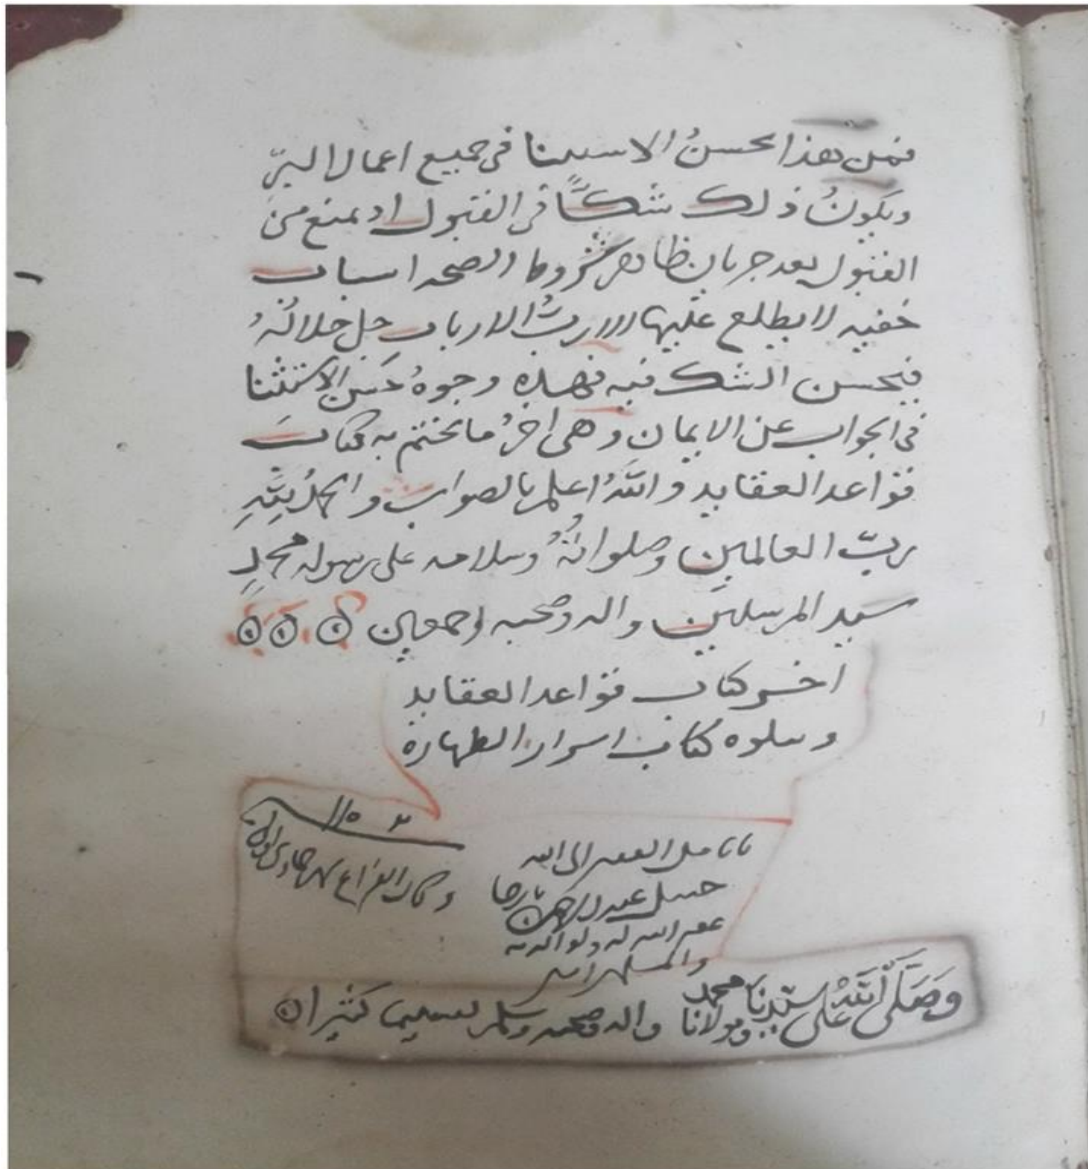 فمن هذا يحسنُ الاستثنا فى جميع اعمال البرّ
ويكونُ ذلك شكًّا فى القبول اذ يمنع من
القبول بعد جريان ظاهر شروط الصحه اسباب
خفيه لا يطلع عليها الا ربُّ الارباب جل جلالُهُ
فيحسن الشك فيه فهذه وجوهُ حسن الاستثنا
فى الجواب عن الايمان وهى اخرُ ما نختم به كتاب
قواعد العقايد واللهُ اعلم بالصواب والحمدُ للهِ
ربّ العالمين وصلواتُهُ وسلامه على رسوله محمدٍ
سيد المرسلين واله وصحبه اجمعين
اخر كتاب قواعد العقايد
ويتلوه كتاب اسرار الطهاره
الفقير الى الله
عبد الرحمن
غفر الله له ولوالديه
وكان الفراغ
وَصَلَّى اللهُ عَلى سيّدِنَا ومولانا محمد واله وصحبه وسلم تسليما كثيرا